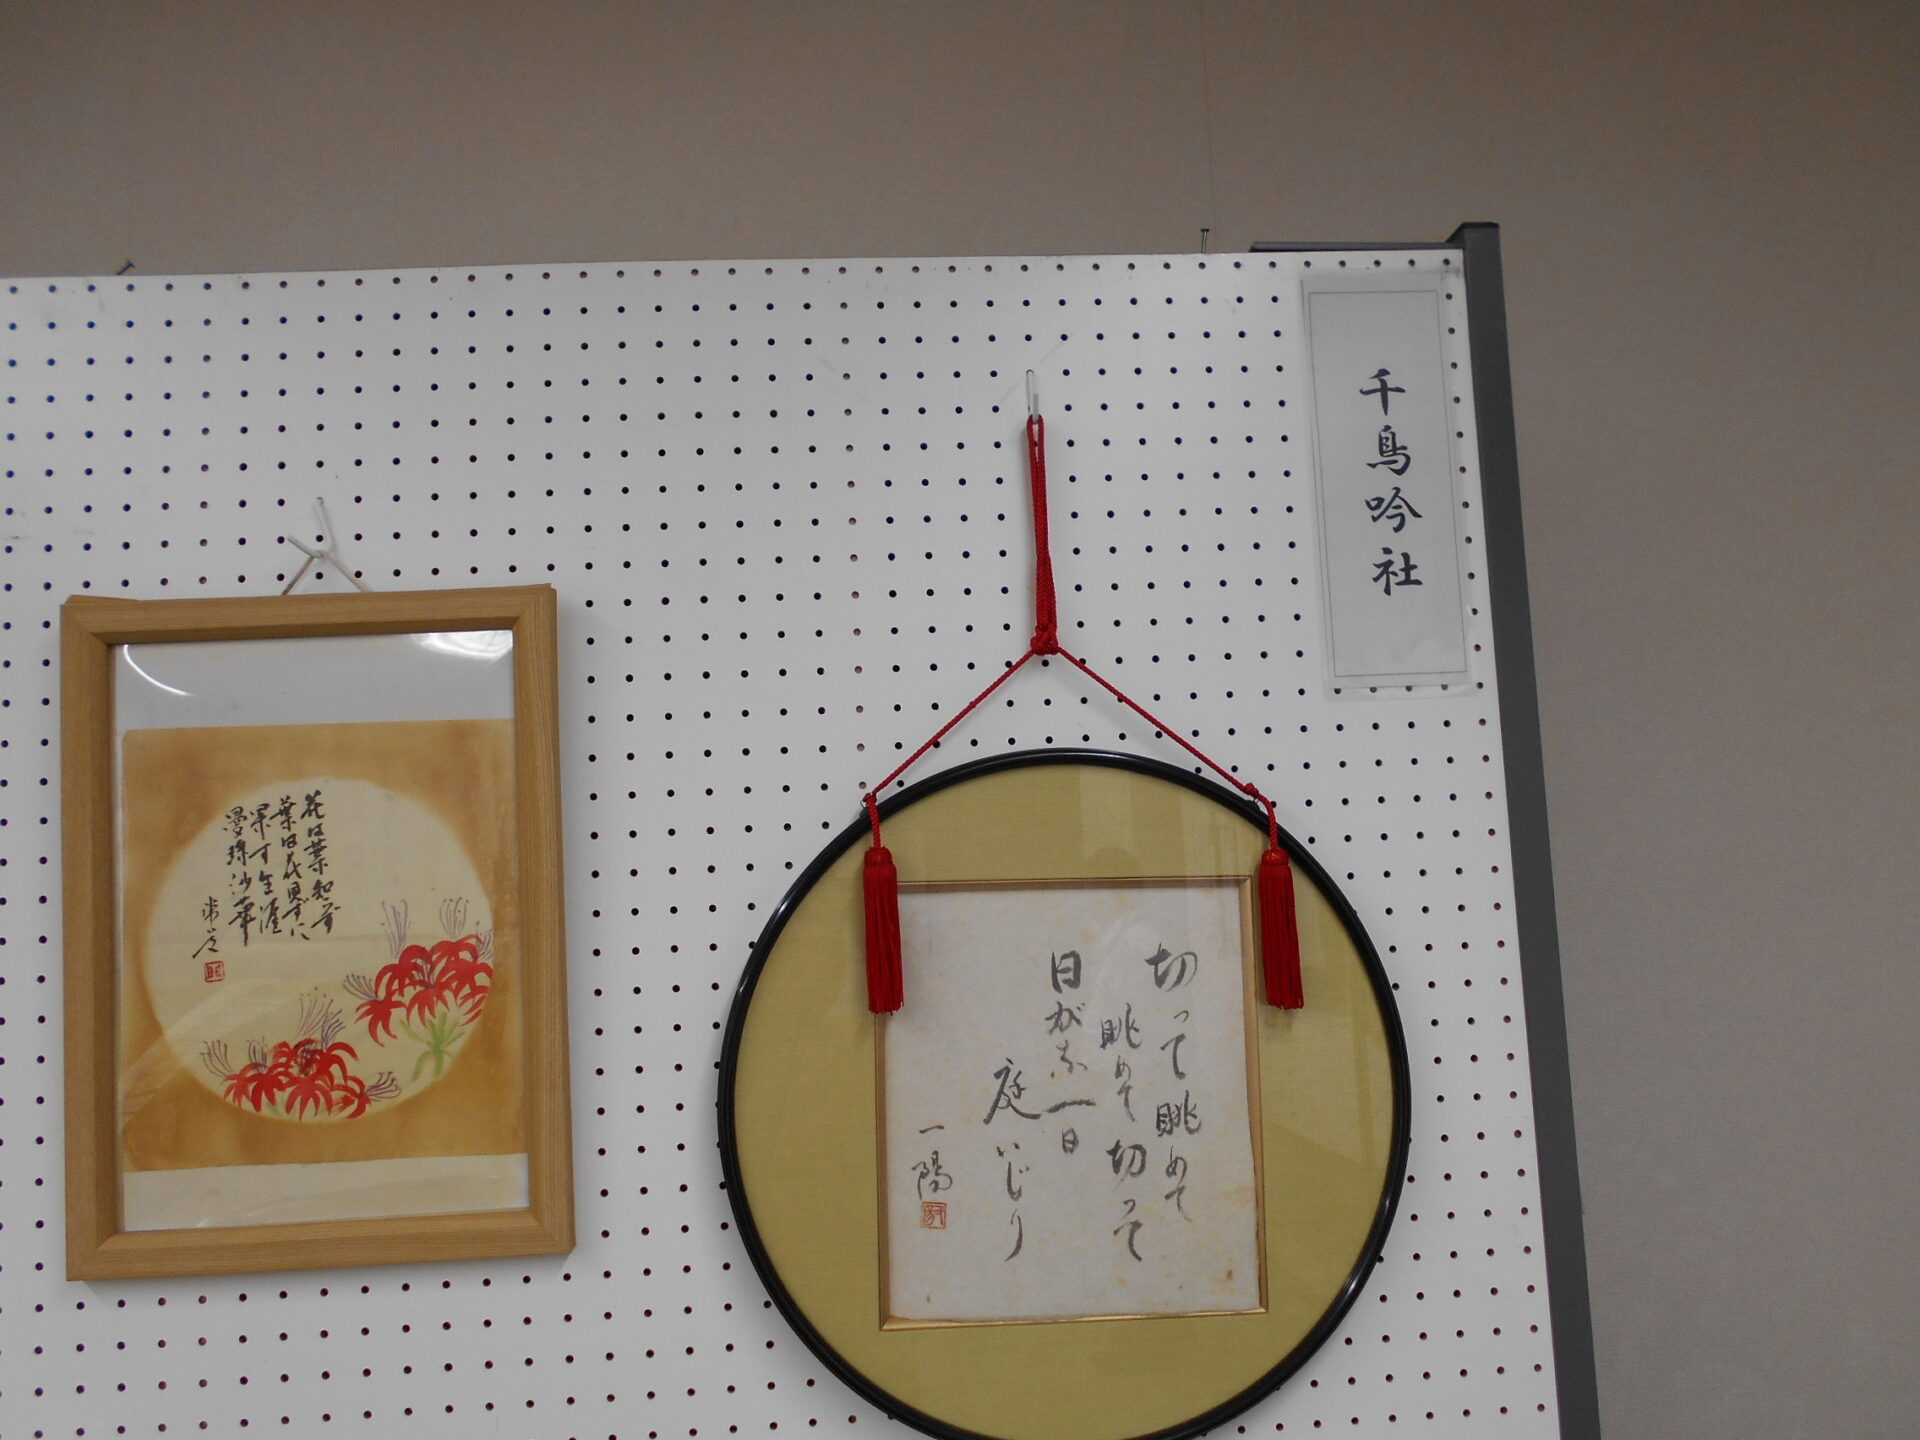 千鳥吟社
切って眺めて
眺めて切って
日がな一日
庭いじり
一陽
花は葉知らず
葉は花見ずに
果す生涯
曼珠沙華